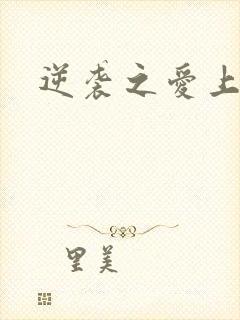 逆袭之爱上
里美